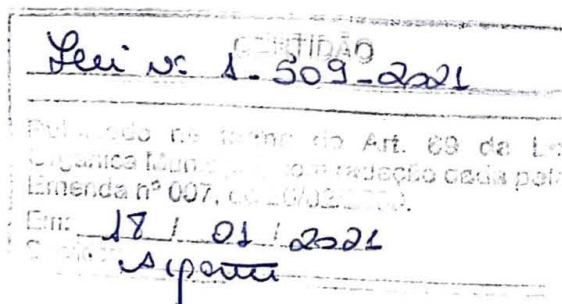 CERTIDÃO
Lei Nº 1.509-2021
Publicado na forma do Art. 69 da Le
Orgânica Municipal, com redação dada pela
Emenda nº 007, de
Em: 18 / 01 / 2021